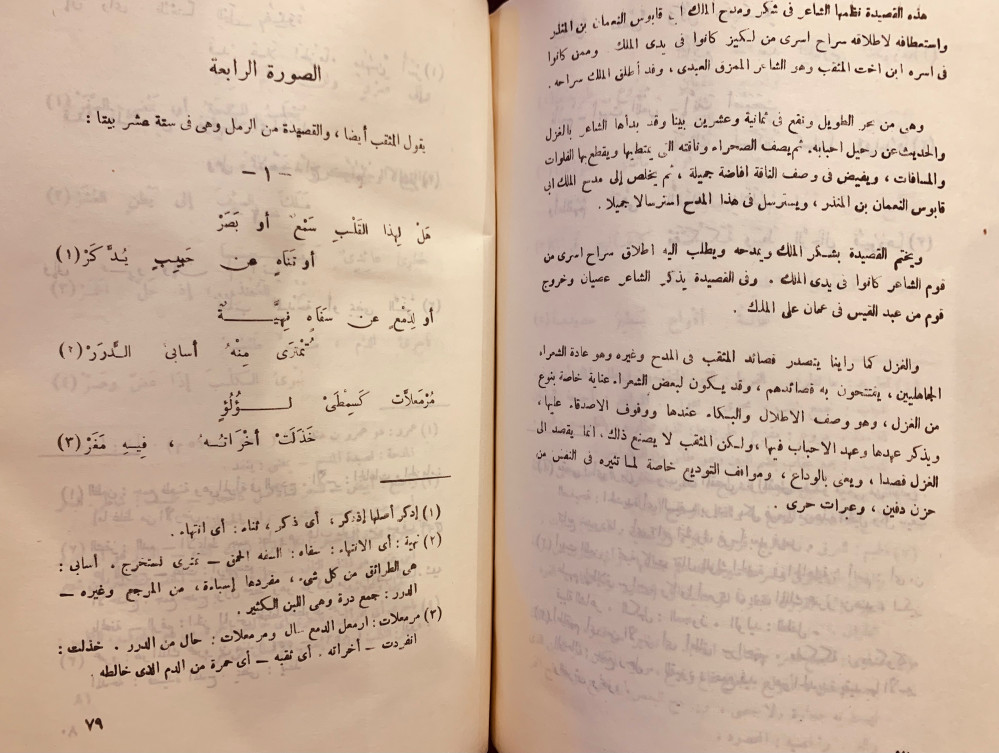 هذه القصيدة نظمها الشاعر فى شكر ومدح الملك ابى قابوس النعمان بن المنذر
واستعطافه لاطلاقه سراح اسرى من لكيز كانوا فى يدى الملك وممن كانوا
فى اسره ابن اخت المثقب وهو الشاعر الممزق العبدى ، وقد أطلق الملك سراحه .
وهى من بحر الطويل وتقع فى ثمانية وعشرين بيتا وقد بدأها الشاعر بالغزل
والحديث عن رحيل احبابه. ثم يصف الصحراء وناقته التى يمتطيها ويقطع بها الفلوات
والمسافات ، ويفيض فى وصف الناقة افاضة جميلة ، ثم يخلص إلى مدح الملك ابى
قابوس النعمان بن المنذر ، ويسترسل فى هذا المدح استرسالا جميلا .
ويختم القصيدة بشكر الملك وبمدحه ويطلب اليه اطلاق سراح اسرى من
قوم الشاعر كانوا فى يدى الملك . وفى القصيدة يذكر الشاعر عصيان وخروج
قوم من عبد القيس فى عمان على الملك .
والغزل كما راينا يتصدر قصائد المثقب فى المدح وغيره وهو عادة الشعراء
الجاهليين ، يفتتحون به قصائدهم ، وقد يكون لبعض الشعراء عناية خاصة بنوع
من الغزل ، وهو وصف الاطلال والبكاء عندها ووقوف الاصدقاء عليها ،
ويذكر عهدها وعهد الاحباب فيها ، ولكن المثقب لا يصنع ذلك . انما يقصد الى
الغزل قصدا ، ويعنى بالوداع ، ومواقف التوديع خاصة لما تثيره فى النفس من
حزن دفين ، وعبرات حرى .
الصورة الرابعة
يقول المثقب أيضا ، والقصيدة من الرمل وهى فى ستة عشر بيتا :
— ١ —
هَلْ لِهذا القَلْبِ سَمْعٌ أو بَصَرْ
أو تَنَاهٍ عن حَبِيبٍ يُدَّكَرْ (١)
أو لِدَمْعٍ عن سَفَاهٍ نُهْيَةٌ
تُمْتَرَى مِنْهُ أسابىُّ الدَّرَرْ (٢)
مُرْمَعِلَّات كَسِمْطَىْ لُؤْلُؤٍ
خَذَلَتْ أخْرَاتُهُ ، فِيهِ مَغَرْ (٣)
(١) إدكر أصلها إذتكر ، أى ذكر ، تناه : أى انتهاء .
(٢) نهية : أى الانتهاء : سفاه : السفه الحمق — تمترى تستخرج . أسابى :
هى الطرائق من كل شىء ، مفردها إسباءة ، من المرجع وغيره —
الدرر : جمع درة وهى اللبن الكثير .
(٣) مرمعلات : ارمعل الدمع سال ومرمعلات : حال من الدرر . خذلت :
انفردت — أخراته . أى ثقبه — أى حمرة من الدم الذى خالطه .
٧٩